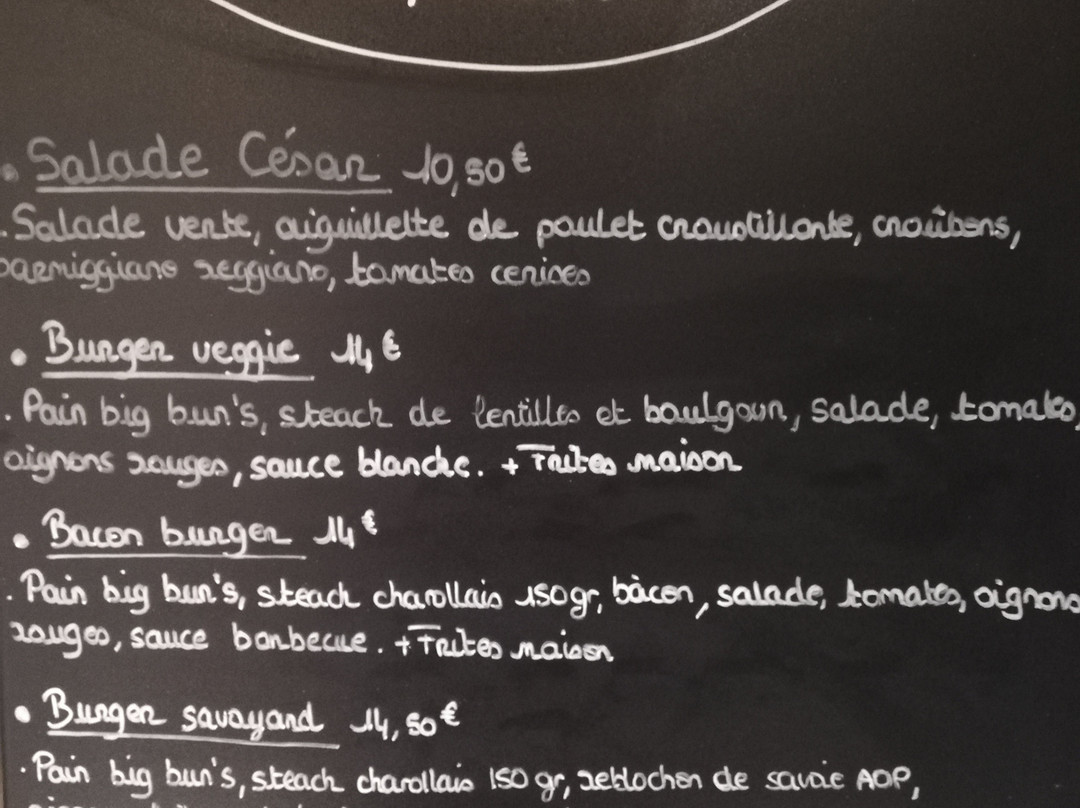 • Salade César 10,50€
. Salade verte, aiguillette de poulet croustillante, croûtons,
parmiggiano reggiano, tomates cerises
• Burger veggie 14€
. Pain big bun's, steack de lentilles et boulgour, salade, tomates,
oignons rouges, sauce blanche. + Frites maison
• Bacon burger 14€
. Pain big bun's, steack charollais 150gr, bàcon, salade, tomates, oignons
rouges, sauce barbecue. + Frites maison
• Burger savoyard 14,50€
. Pain big bun's, steack charollais 150 gr, reblochon de savoie AOP,